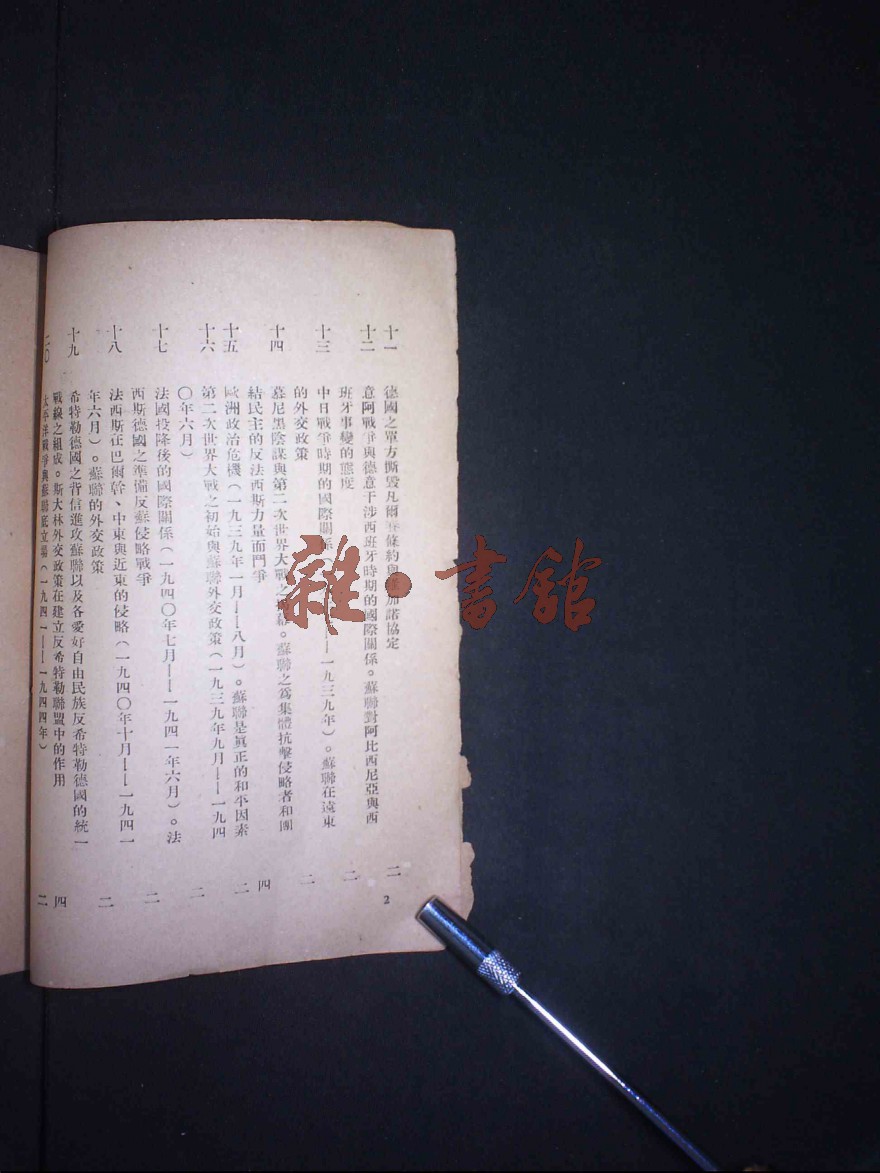 十一 德國之單方撕毀凡爾賽條約與羅加諾協定 二
十二 意阿戰爭與德意干涉西班牙時期的國際關係。蘇聯對阿比西尼亞與西
班牙事變的態度 二
十三 中日戰爭時期的國際關係 一九三九年)。蘇聯在遠東
的外交政策 二
十四 慕尼黑陰謀與第二次世界大戰之 。蘇聯之爲集體抗擊侵略者和團
結民主的反法西斯力量而鬥爭 四
十五 歐洲政治危機(一九三九年一月——八月)。蘇聯是眞正的和平因素 二
十六 第二次世界大戰之初始與蘇聯外交政策(一九三九年九月——一九四
〇年六月) 二
十七 法國投降後的國際關係(一九四〇年七月——一九四一年六月)。法
西斯德國之準備反蘇侵略戰爭 二
十八 法西斯在巴爾幹、中東與近東的侵略(一九四〇年十月——一九四一
年六月)。蘇聯的外交政策 二
十九 希特勒德國之背信進攻蘇聯以及各愛好自由民族反希特勒德國的統一
戰線之組成。斯大林外交政策在建立反希特勒聯盟中的作用 四
二〇 太平洋戰爭與蘇聯底立場(一九四一——一九四四年) 二
2
雜·書館